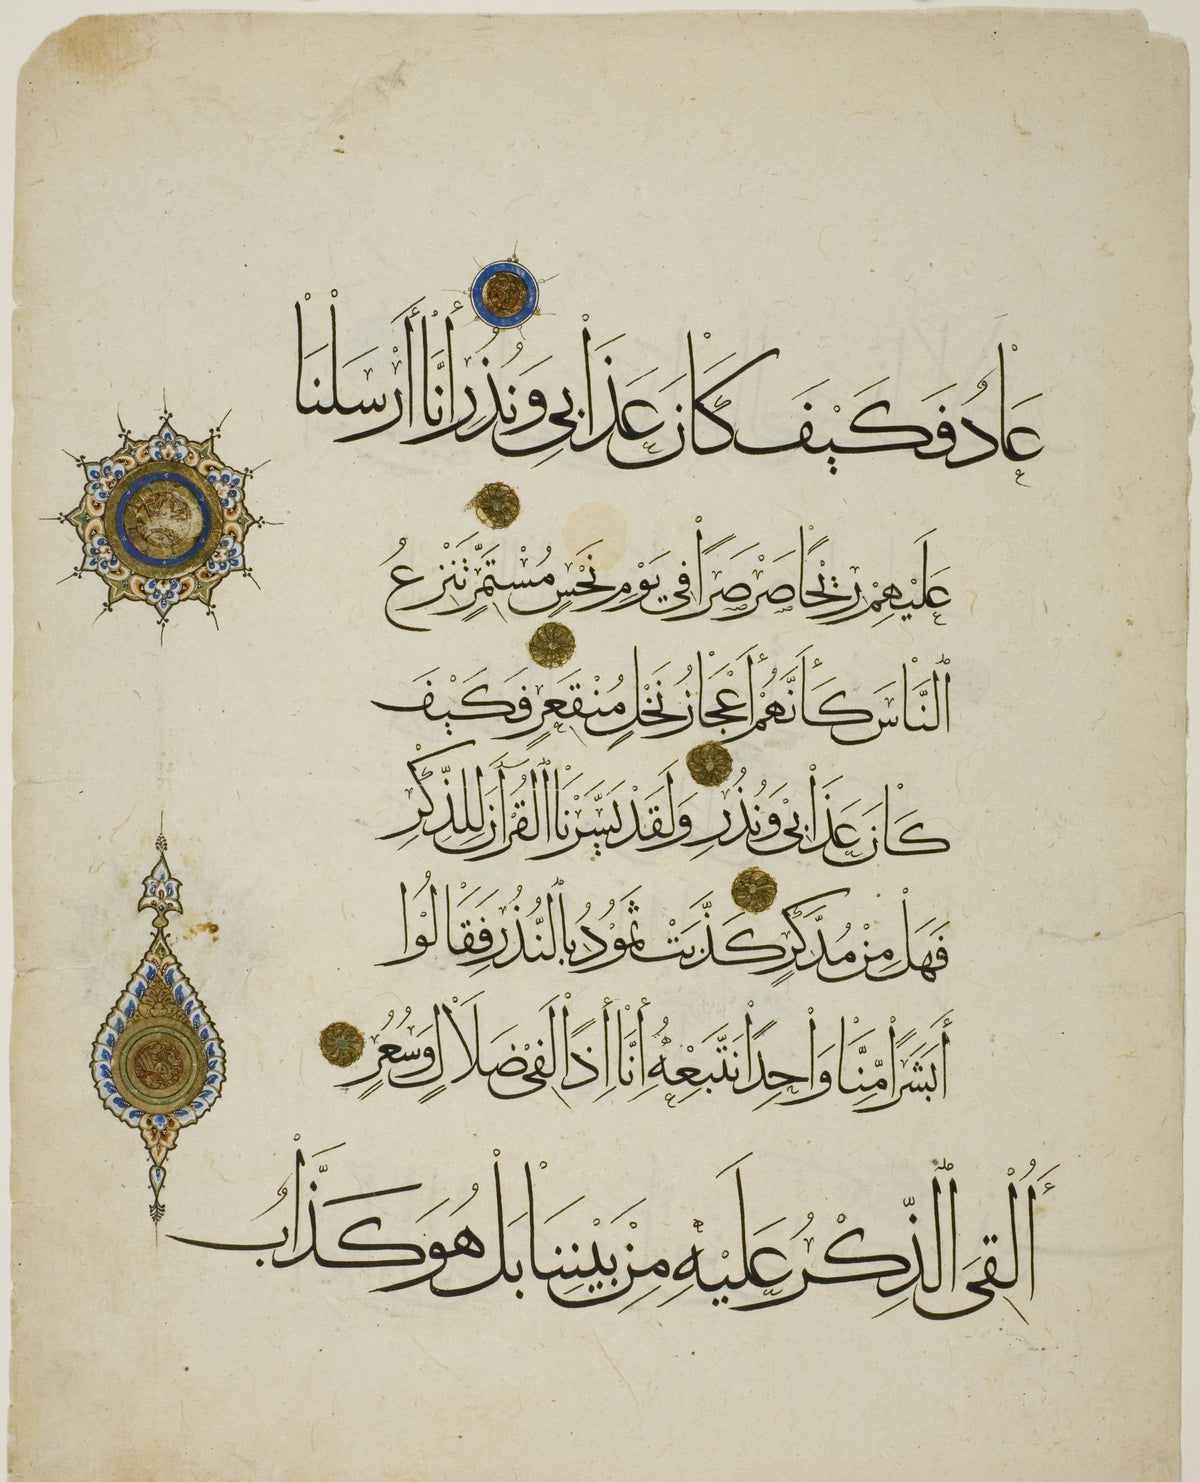 عَادٌ فَكَيْفَ كَانَ عَذَابِي وَنُذُرِ إِنَّا أَرْسَلْنَا
عَلَيْهِمْ رِيْحًا صَرْصَرًا فِي يَوْمِ نَحْسٍ مُسْتَمِرٍّ تَنْزِعُ
النَّاسَ كَأَنَّهُمْ أَعْجَازُ نَخْلٍ مُنْقَعِرٍ فَكَيْفَ
كَانَ عَذَابِيْ وَنُذُرِ وَلَقَدْ يَسَّرْنَا الْقُرْآنَ لِلذِّكْرِ
فَهَلْ مِنْ مُدَّكِرٍ كَذَّبَتْ ثَمُوْدُ بِالنُّذُرِ فَقَالُوْا
أَبَشَرًا مِّنَّا وَاحِدًا نَتَّبِعُهُ إِنَّا إِذًا لَفِيْ ضَلَالٍ وَسُعُرٍ
أَأُلْقِيَ الذِّكْرُ عَلَيْهِ مِنْ بَيْنِنَا بَلْ هُوَ كَذَّابٌ